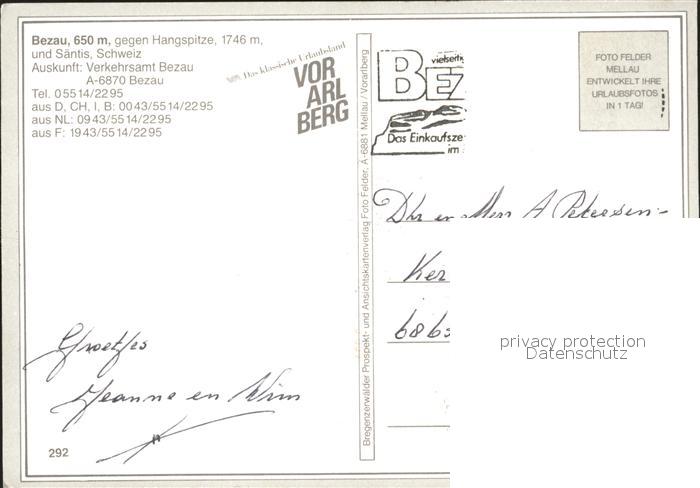 Bezau, 650 m, gegen Hangspitze, 1746 m,
und Säntis, Schweiz
Auskunft: Verkehrsamt Bezau
A-6870 Bezau
Tel. 0 55 14/22 95
aus D, CH, I, B: 00 43/55 14/22 95
aus NL: 09 43/55 14/22 95
aus F: 19 43/55 14/22 95
Das klassische Urlaubsland
VOR
ARL
BERG
Groetjes
Jeanne en Wim
292
Bregenzerwälder Prospekt- und Ansichtskartenverlag Foto Felder, A-6881 Mellau/Vorarlberg
BEZ
Das Einkaufsze
im
FOTO FELDER
MELLAU
ENTWICKELT IHRE
URLAUBSFOTOS
IN 1 TAG!
Dhr en Mevr A Petersen-
Ker
6865
privacy protection
Datenschutz